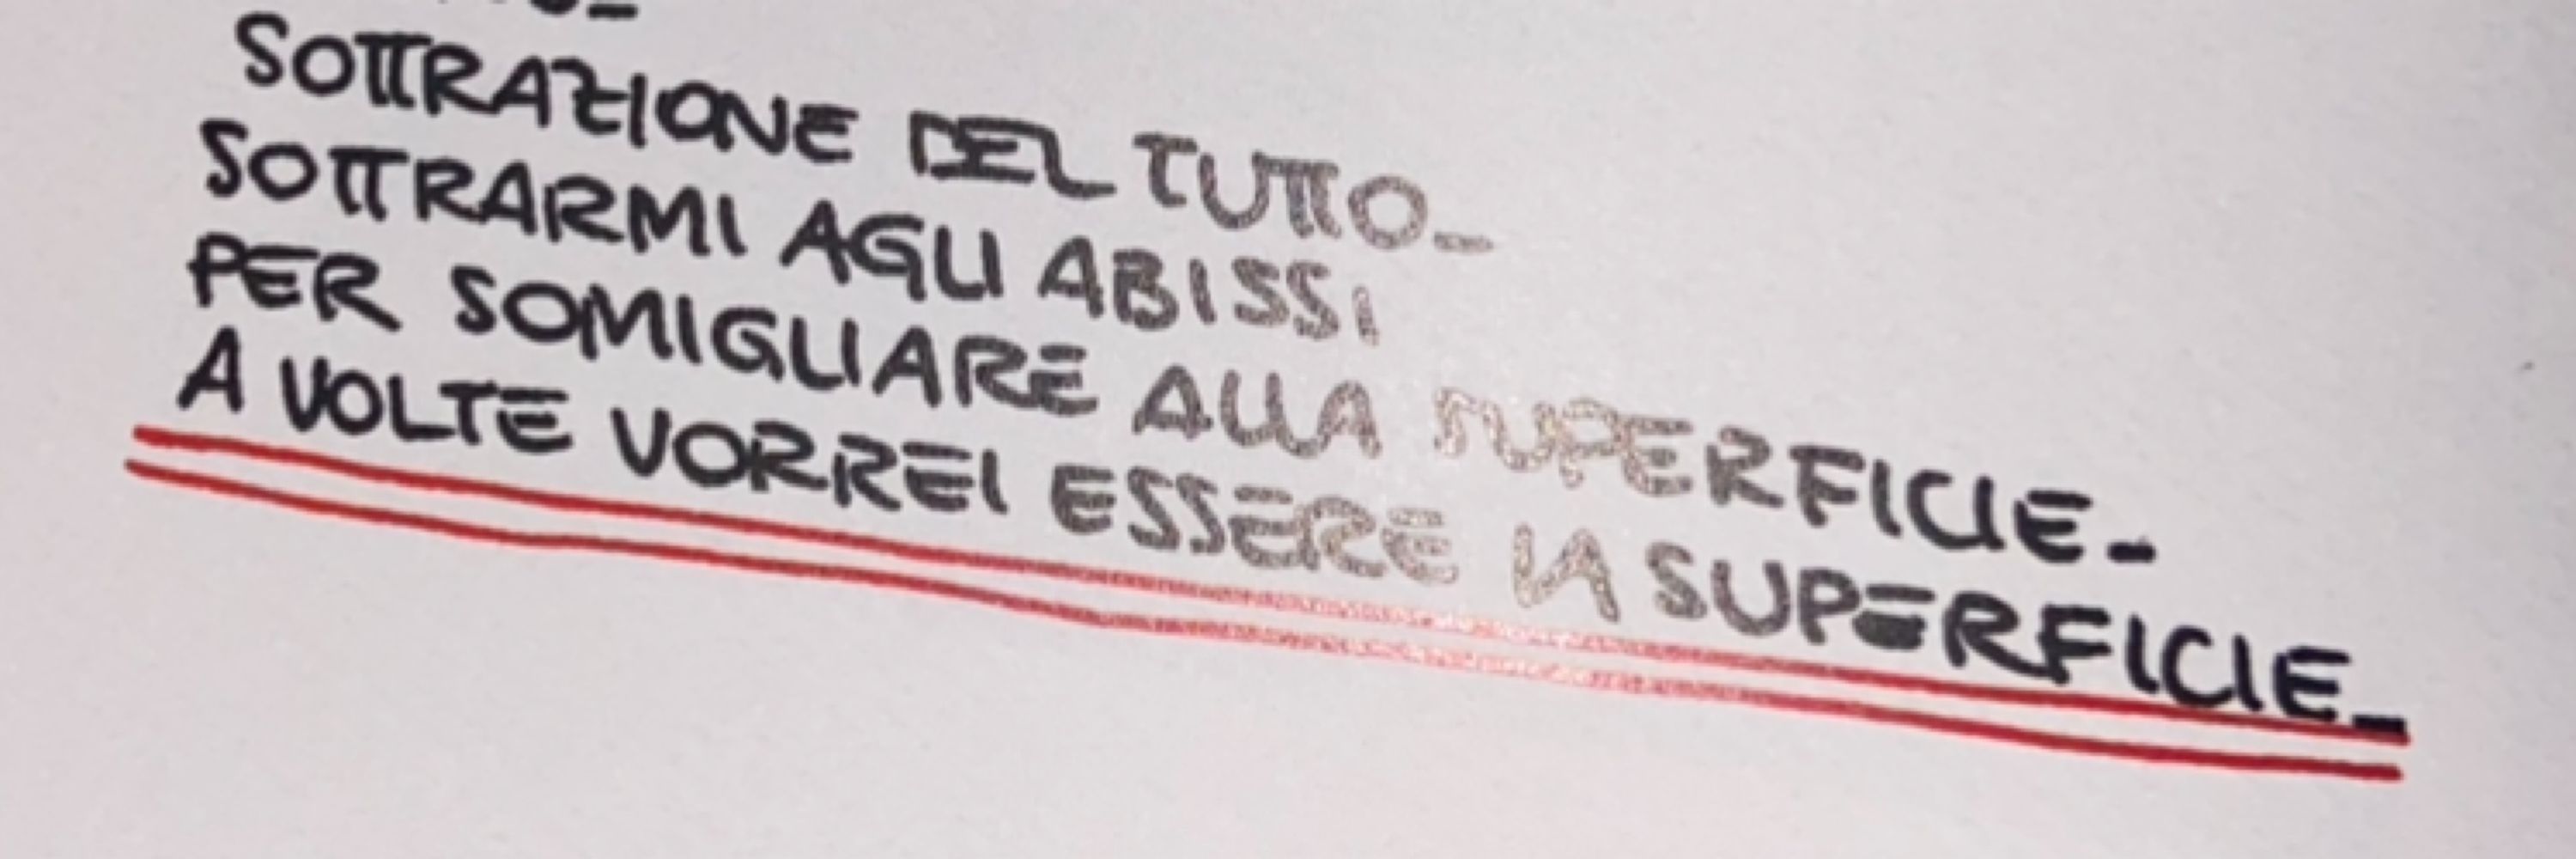 SOTTRAZIONE DEL TUTTO_
SOTTRARMI AGLI ABISSI
PER SOMIGLIARE ALLA SUPERFICIE_
A VOLTE VORREI ESSERE LA SUPERFICIE_